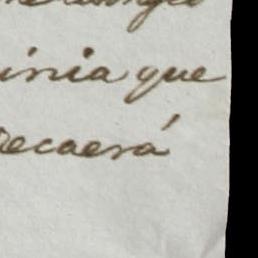 inia que
recaerá